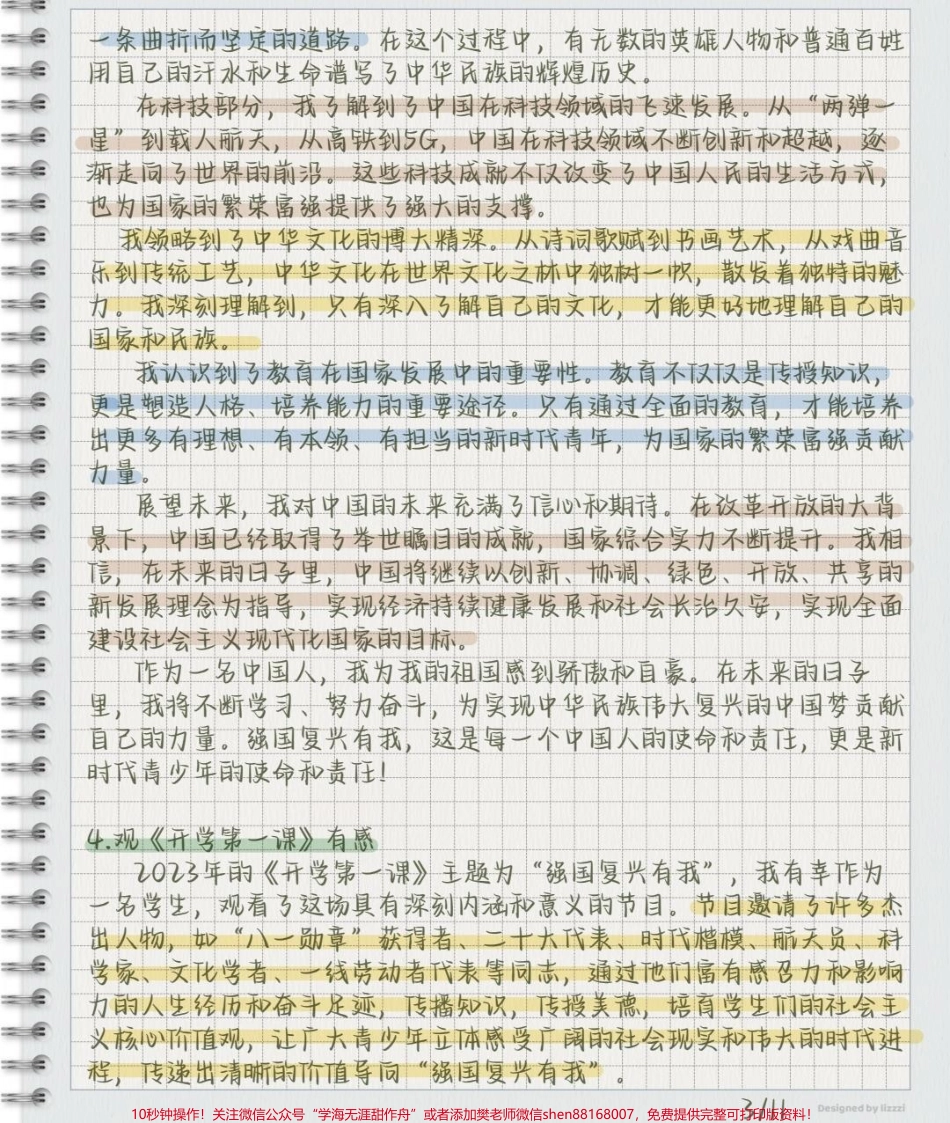 一条曲折而坚定的道路。在这个过程中，有无数的英雄人物和普通百姓
用自己的汗水和生命谱写了中华民族的辉煌历史。
在科技部分，我了解到了中国在科技领域的飞速发展。从“两弹一
星”到载人航天，从高铁到5G，中国在科技领域不断创新和超越，逐
渐走向了世界的前沿。这些科技成就不仅改变了中国人民的生活方式，
也为国家的繁荣富强提供了强大的支撑。
我领略到了中华文化的博大精深。从诗词歌赋到书画艺术，从戏曲音
乐到传统工艺，中华文化在世界文化之林中独树一帜，散发着独特的魅
力。我深刻理解到，只有深入了解自己的文化，才能更好地理解自己的
国家和民族。
我认识到了教育在国家发展中的重要性。教育不仅仅是传授知识，
更是塑造人格、培养能力的重要途径。只有通过全面的教育，才能培养
出更多有理想、有本领、有担当的新时代青年，为国家的繁荣富强贡献
力量。
展望未来，我对中国的未来充满了信心和期待。在改革开放的大背
景下，中国已经取得了举世瞩目的成就，国家综合实力不断提升。我相
信，在未来的日子里，中国将继续以创新、协调、绿色、开放、共享的
新发展理念为指导，实现经济持续健康发展和社会长治久安，实现全面
建设社会主义现代化国家的目标。
作为一名中国人，我为我的祖国感到骄傲和自豪。在未来的日子
里，我将不断学习、努力奋斗，为实现中华民族伟大复兴的中国梦贡献
自己的力量。强国复兴有我，这是每一个中国人的使命和责任，更是新
时代青少年的使命和责任！
4.观《开学第一课》有感
2023年的《开学第一课》主题为“强国复兴有我”，我有幸作为
一名学生，观看了这场具有深刻内涵和意义的节目。节目邀请了许多杰
出人物，如“八一勋章”获得者、二十大代表、时代楷模、航天员、科
学家、文化学者、一线劳动者代表等同志，通过他们富有感召力和影响
力的人生经历和奋斗足迹，传播知识，传授美德，培育学生们的社会主
义核心价值观，让广大青少年立体感受广阔的社会现实和伟大的时代进
程，传递出清晰的价值导向“强国复兴有我”。
3/11
Designed by lizzzi
10秒钟操作！关注微信公众号“学海无涯甜作舟”或者添加樊老师微信shen88168007，免费提供完整可打印版资料！